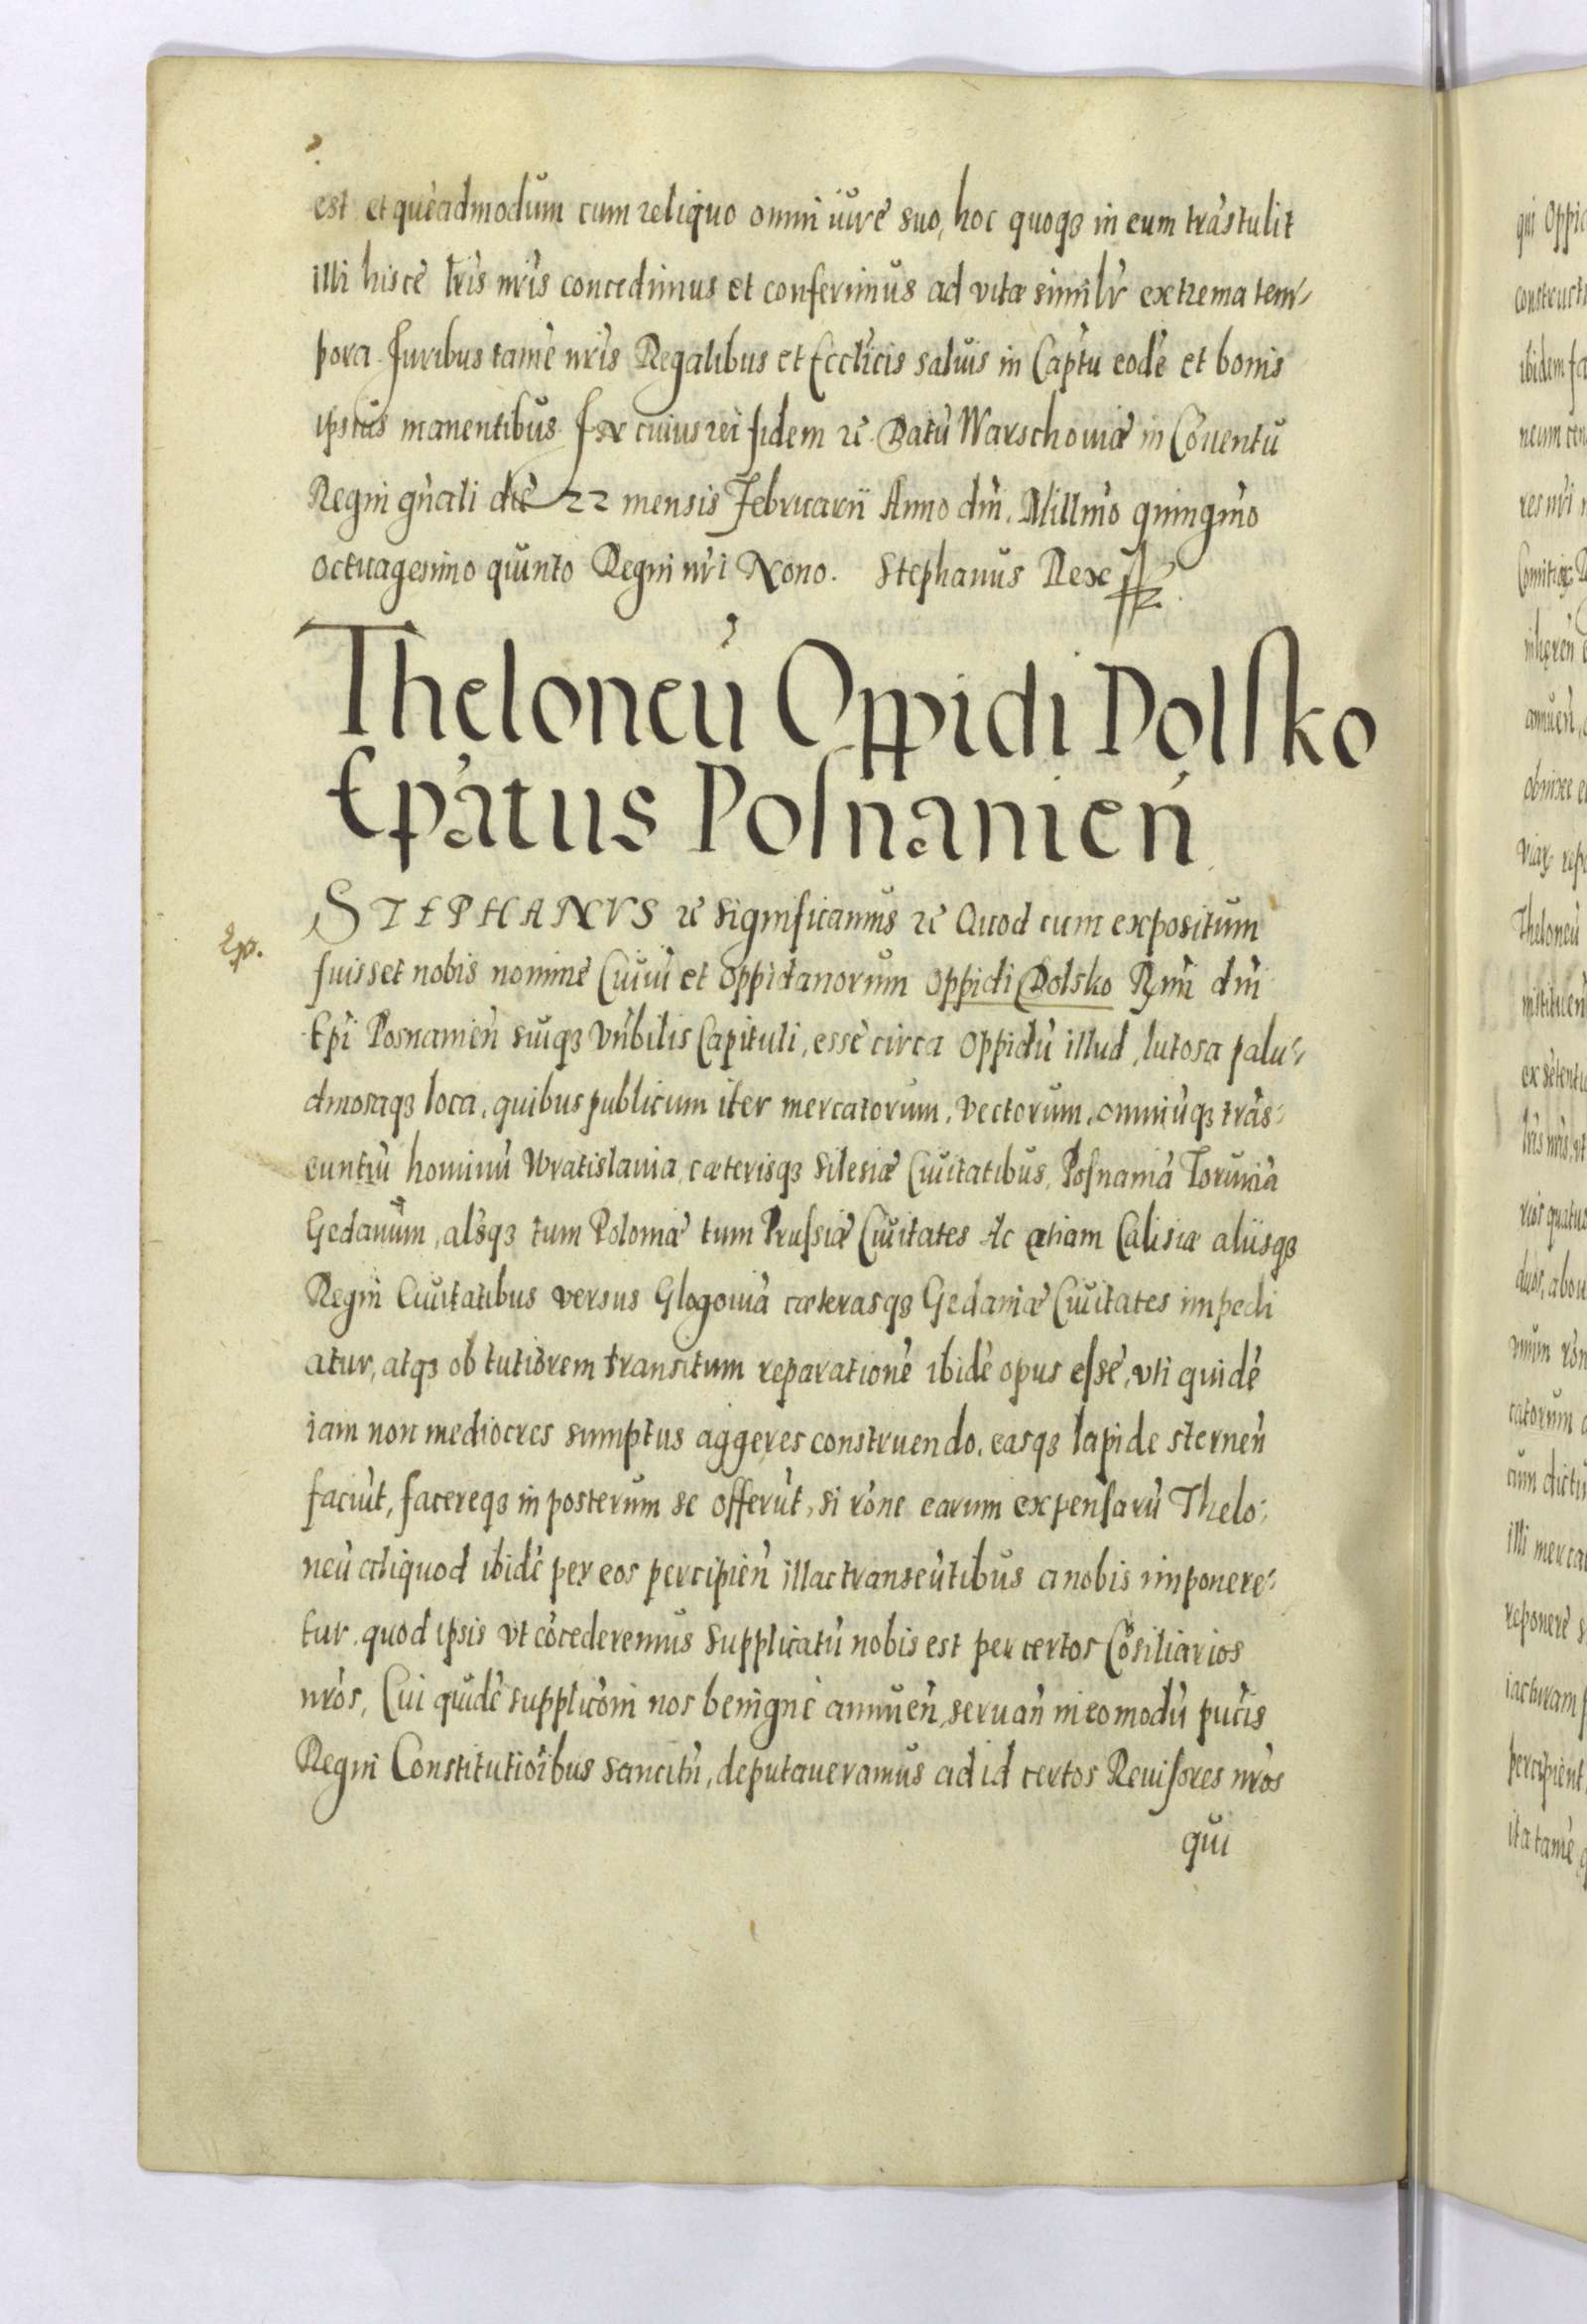 est et quēadmodum cum reliquo omni iure suo, hoc quoqꝫ in eum trāstulit
illi hisce lr̄is nr̄is concedimus et conferimus ad vitæ similr̄ extrema tem⸗
pora. Juribus tamē nr̄is Regalibus et Eccl̄icis saluis in Cap̄tu eodē et bonis
ipsius manentibus. In cuius rei fidem ꝛc̄. Datū Warschouiæ in Cōuentu
Regni gn̄ali die 22 mensis Februarii Anno dn̄i. Mill̄mo quingm̄o
octuagesimo quinto Regni nr̄i Nono. Stephanus Rex
Theloneū Oppidi Dolsko
Ep̄atus Posnanien̄
Ep.
STEPHANVS ꝛc̄ Significamus ꝛc̄ Quod cum expositum
fuisset nobis nomine Ciuiū et Oppidanorum Oppidi Dolsko R̄mi dn̄i
Ep̄i Posnanien̄ suiqꝫ Vn̄bilis Capituli, esse circa Oppidū illud, lutosa palu⸗
dinosaqꝫ loca, quibus publicum iter mercatorum, vectorum, omniūqꝫ trās⸗
euntiū hominū Wratislauia, cæterisqꝫ Silesiæ Ciuitatibus, Posnaniā Toruniā
Gedanum, alsqꝫ tum Poloniæ tum Prussiæ Ciuitates Ac etiam Calisia aliisqꝫ
Regni Ciuitatibus versus Glogouiā cæterasqꝫ Gedaniæ Ciuitates impedi
atur, atqꝫ ob tutiorem transitum reparatione ibidē opus esse, vti quidē
iam non mediocres sumptus aggeres construendo, easqꝫ lapide sternen̄
faciūt, facereqꝫ in posterum se offerūt, si rōne earum expensarū Thelo⸗
neū aliquod ibidē per eos percipien̄ illac transeūtibus a nobis imponere⸗
tur. quod ipsis vt cōcederemus supplicatū nobis est per certos Cōsiliarios
nr̄os, Cui quidē supplicōni nos benigne annuen̄, seruan̄ in eo modū puc̄is
Regni Constitutiōibus sancitū, deputaueramus ad id certos Reuisores nr̄os
qui